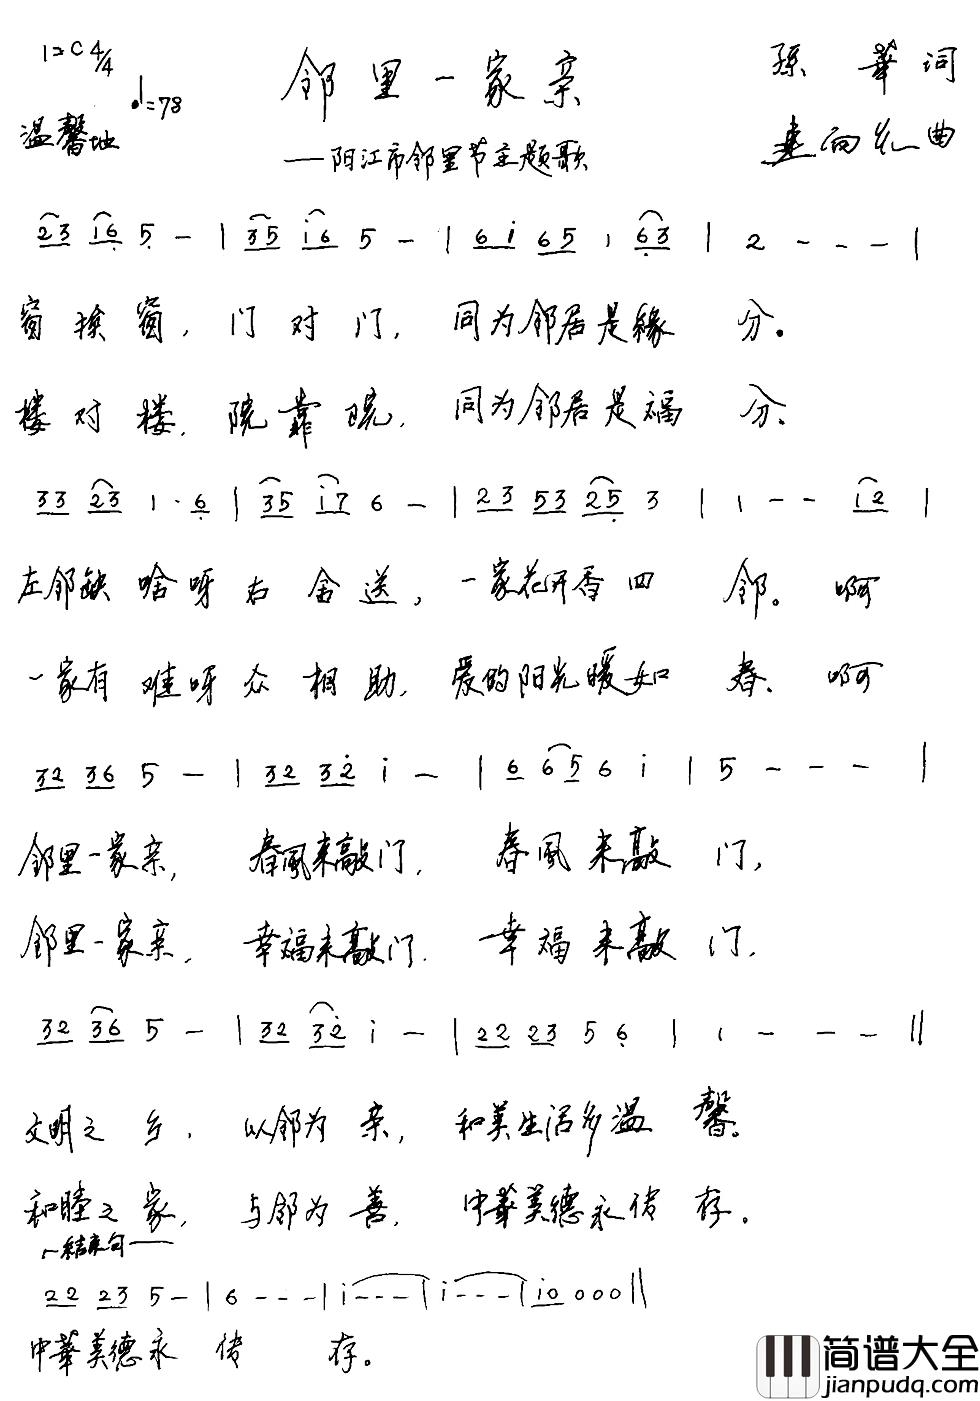 1=C 4/4
♩=78
温馨地
邻里一家亲
——阳江市邻里节主题歌
孙華词
向 曲
23 i6 5 - | 35 i6 5 - | 6i 65 1 63 | 2 - - - |
窗挨窗，门对门，同为邻居是缘分。
楼对楼，院靠院，同为邻居是福分。
33 23 1· 6 | 35 i7 6 - | 23 53 25 3 | 1 - - i2 |
左邻缺啥呀右舍送，一家花开香四邻。啊
一家有难呀众相助，爱的阳光暖如春。啊
32 36 5 - | 32 32 i - | 6 65 6 i | 5 - - - |
邻里一家亲，春風来敲门，春風来敲门，
邻里一家亲，幸福来敲门，幸福来敲门，
32 36 5 - | 32 32 i - | 22 23 5 6 | 1 - - - ||
文明之乡，以邻为亲，和美生活多温馨。
和睦之家，与邻为善，中華美德永传存。
结束句
22 23 5 - | 6 - - - | i - - - | i - - - | i0 0 0 0 ||
中華美德永传存。
简谱大全
jianpudq.com